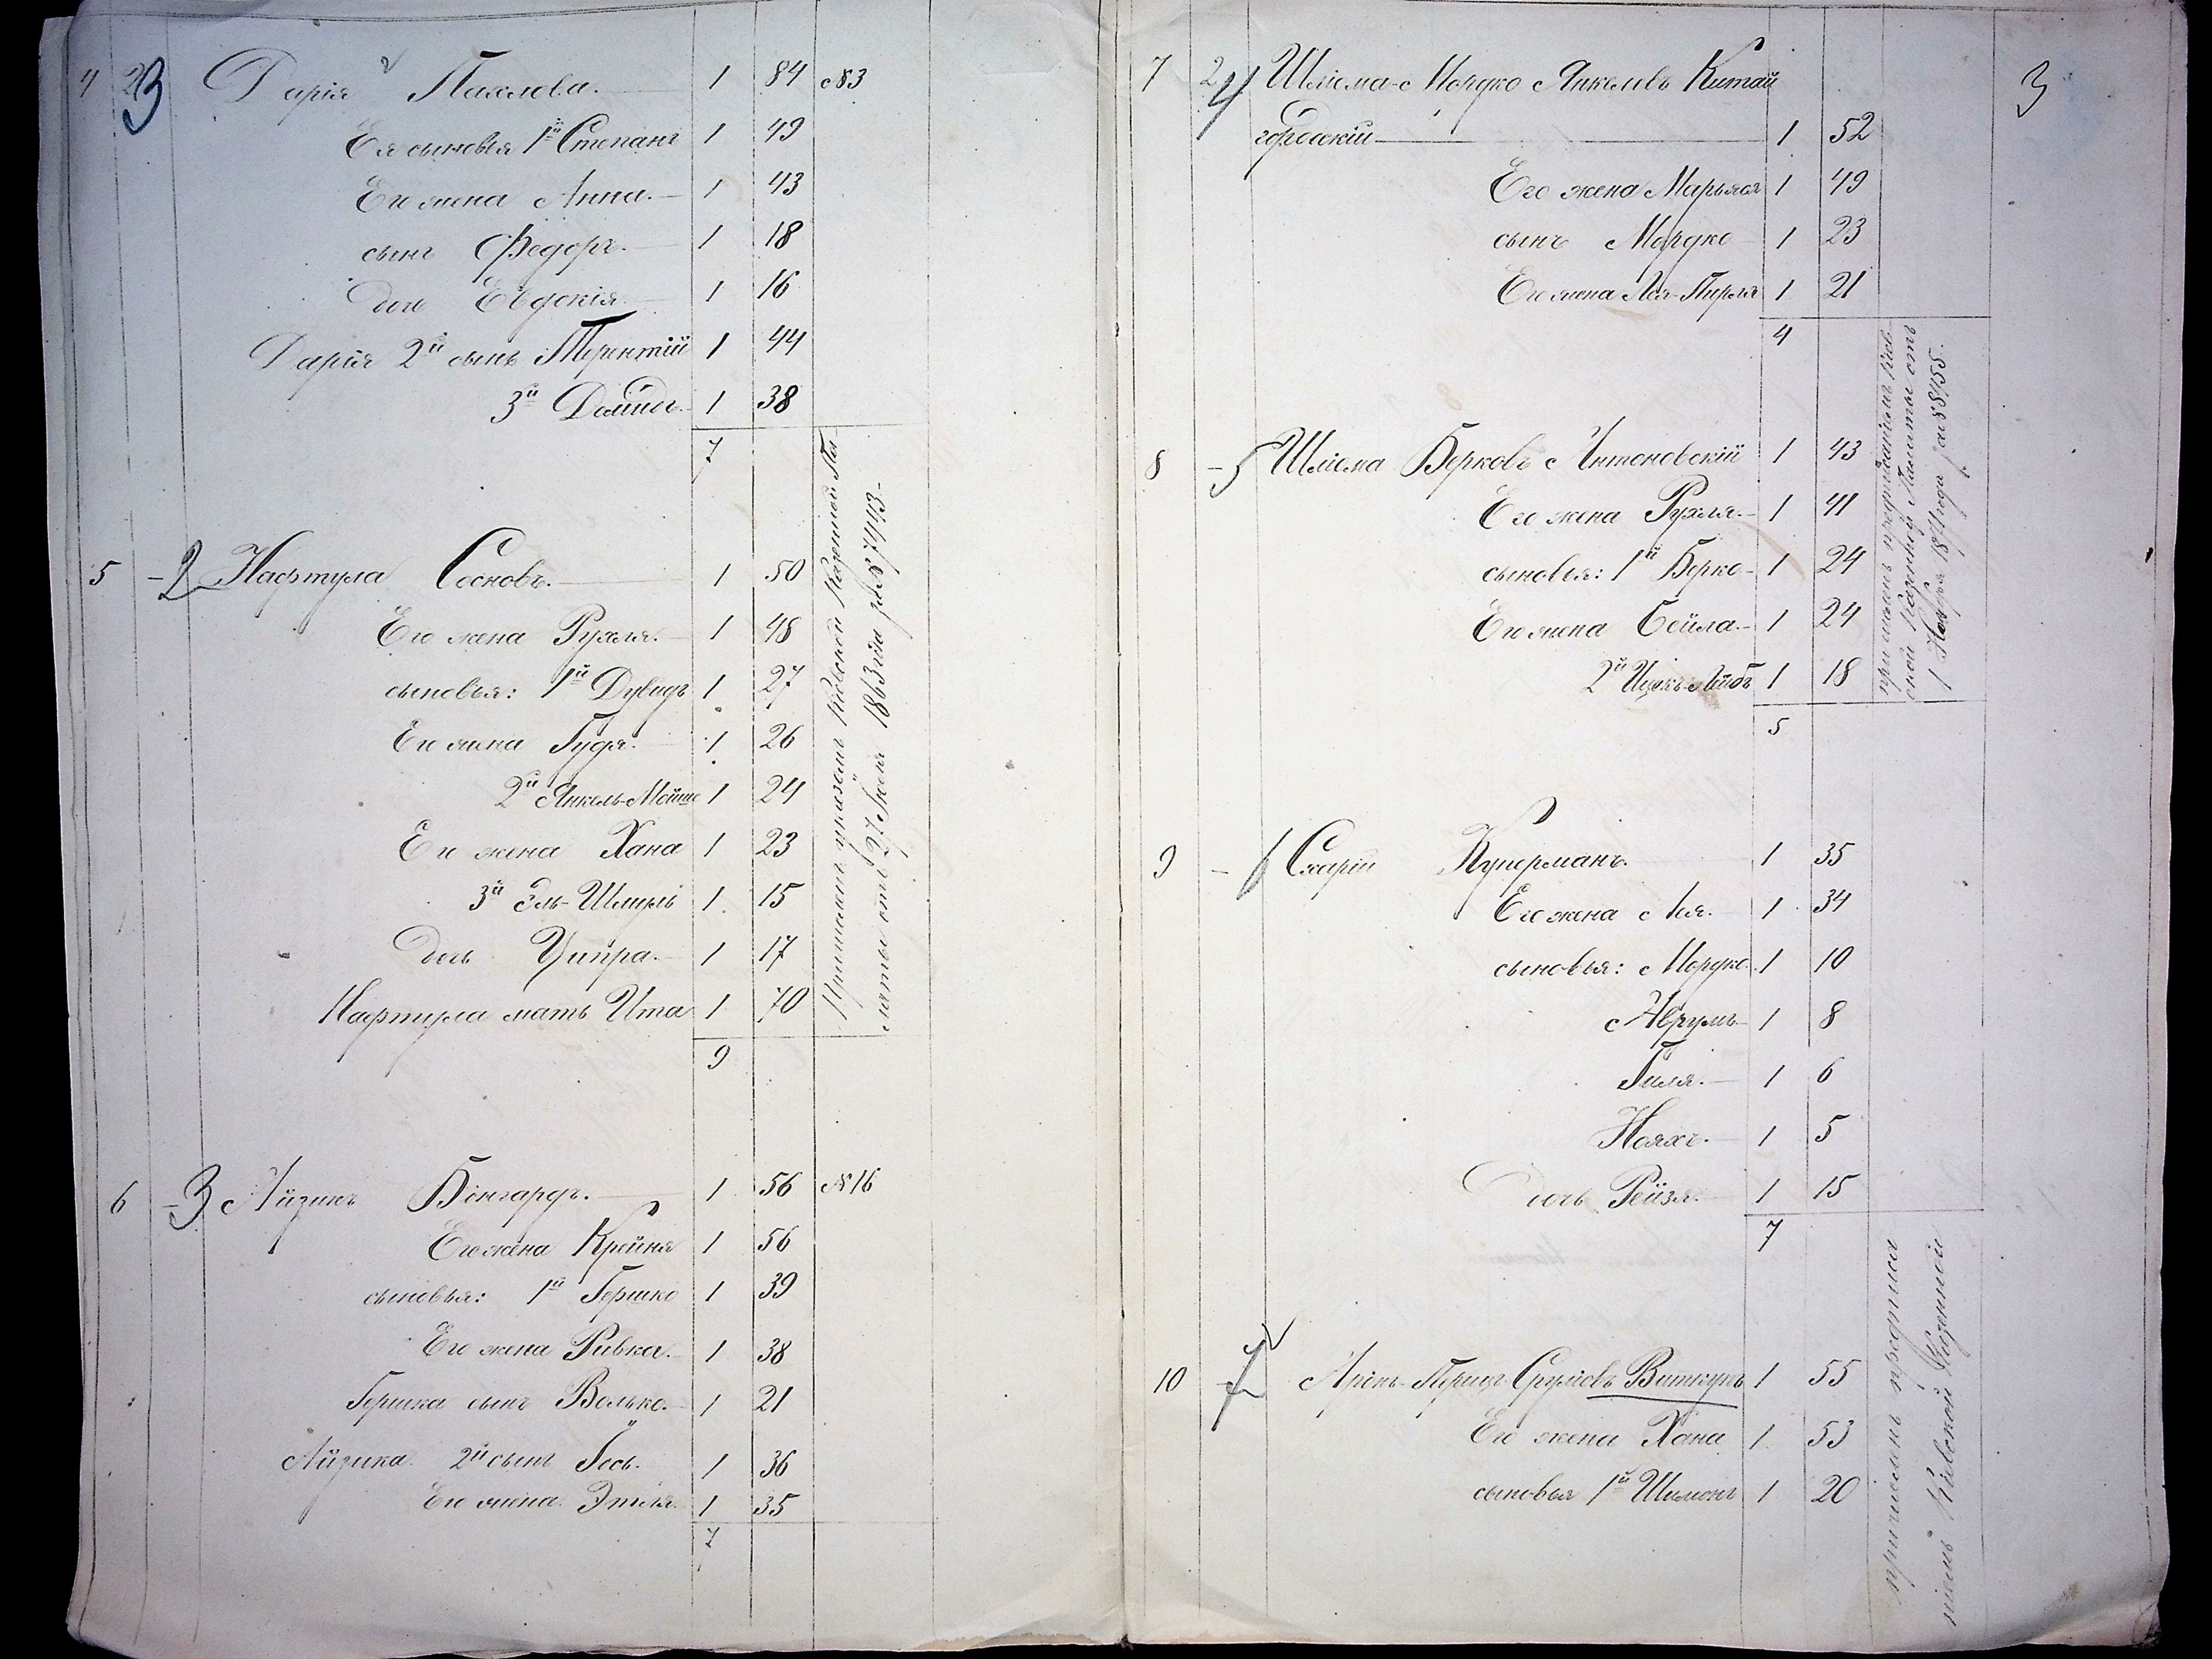 4 3 Дарія Пахлова. 1 84 №3
Ея сыновья 1й Степанъ 1 49
Его жена Анна. 1 43
сынъ Федоръ. 1 18
дочь Евдокія 1 16
Дарія 2й сынъ Терентій 1 44
3й Даміянъ 1 38
7
5 - 2 Нафтула Сосновъ. 1 50
Его жена Рухля. 1 48
сыновья: 1й Дувидъ 1 27
Его жена Гудя. 1 26
2й Янкель-Мойше 1 24
Его жена Хана 1 23
3й Эль-Шмуль 1 15
дочь Ципра. 1 17
Нафтула мать Ита 1 70
9
Причисленъ указомъ Кіевской Казенной Па-
латы от 27 Іюня 1863 года за №7443-
6 - 3 Айзикъ Бонгардъ. 1 56 №16
Его жена Крейня 1 56
сыновья: 1й Гершко 1 39
Его жена Ривка. 1 38
Гершка сынъ Волько. 1 21
Айзика 2й сынъ Іось. 1 36
Его жена Этля. 1 35
7
3
7 2 4 Шліома-Мордко Янкелевъ Китай
городскій 1 52
Его жена Марьяся 1 49
сынъ Мордко 1 23
Его жена Лея-Пирля 1 21
4
8 - 5 Шліома Берковъ Антоновскій 1 43
Его жена Рухля. 1 41
сыновья: 1й Берко 1 24
Его жена Бейла. 1 24
2й Ицекъ-Лейбъ 1 18
5
причисленъ предписаніемъ Кіев
ской Казенной Палаты отъ
1 Ноября 1871 года за №8455.
9 - 6 Схарій Куперманъ. 1 35
Его жена Лея. 1 34
сыновья: Мордко. 1 10
Аврумъ 1 8
Гиля. 1 6
Нояхъ. 1 5
дочь Рейзя. 1 15
7
10 - 7 Аронъ-Герцъ Сруліовъ Виткупъ 1 55
Его жена Хана 1 53
сыновья 1й Шимонъ 1 20
причисленъ предписа
ніемъ Кіевской Казенной